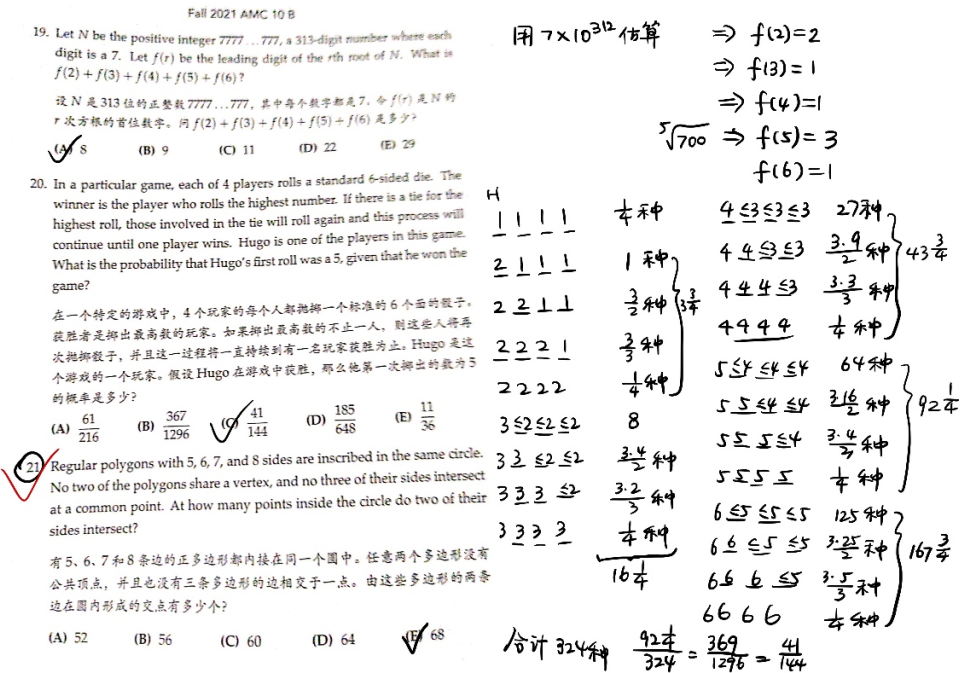 Fall 2021 AMC 10 B
19. Let N be the positive integer 7777...777, a 313-digit number where each
digit is a 7. Let f(r) be the leading digit of the rth root of N. What is
f(2) + f(3) + f(4) + f(5) + f(6)?
设 N 是 313 位的正整数 7777...777, 其中每个数字都是 7。令 f(r) 是 N 的
r 次方根的首位数字。问 f(2) + f(3) + f(4) + f(5) + f(6) 是多少?
(A) 8 (B) 9 (C) 11 (D) 22 (E) 29
20. In a particular game, each of 4 players rolls a standard 6-sided die. The
winner is the player who rolls the highest number. If there is a tie for the
highest roll, those involved in the tie will roll again and this process will
continue until one player wins. Hugo is one of the players in this game.
What is the probability that Hugo's first roll was a 5, given that he won the
game?
在一个特定的游戏中，4 个玩家的每个人都抛掷一个标准的 6 个面的骰子。
获胜者是掷出最高数的玩家。如果掷出最高数的不止一人，则这些人将再
次抛掷骰子，并且这一过程将一直持续到有一名玩家获胜为止。Hugo 是这
个游戏的一个玩家。假设 Hugo 在游戏中获胜，那么他第一次掷出的数为 5
的概率是多少?
(A) 61/216 (B) 367/1296 (C) 41/144 (D) 185/648 (E) 11/36
21. Regular polygons with 5, 6, 7, and 8 sides are inscribed in the same circle.
No two of the polygons share a vertex, and no three of their sides intersect
at a common point. At how many points inside the circle do two of their
sides intersect?
有 5、6、7 和 8 条边的正多边形都内接在同一个圆中。任意两个多边形没有
公共顶点，并且也没有三条多边形的边相交于一点。由这些多边形的两条
边在圆内形成的交点有多少个?
(A) 52 (B) 56 (C) 60 (D) 64 (E) 68
用 7×10³¹² 估算 ⇒ f(2)=2
⇒ f(3)=1
⇒ f(4)=1
⁵√700 ⇒ f(5)=3
f(6)=1
H
1 1 1 1 1/4 种
2 1 1 1 1 种
2 2 1 1 3/2 种
2 2 2 1 3/3 种
2 2 2 2 1/4 种
3 3/4
3 ≤2 ≤2 ≤2 8
3 3 ≤2 ≤2 3·4/2 种
3 3 3 ≤2 3·2/3 种
3 3 3 3 1/4 种
16 1/4
4 ≤3 ≤3 ≤3 27种
4 4 ≤3 ≤3 3·9/2 种
4 4 4 ≤3 3·3/3 种
4 4 4 4 1/4 种
43 3/4
5 ≤4 ≤4 ≤4 64种
5 5 ≤4 ≤4 3·16/2 种
5 5 5 ≤4 3·4/3 种
5 5 5 5 1/4 种
92 1/4
6 ≤5 ≤5 ≤5 125种
6 6 ≤5 ≤5 3·25/2 种
6 6 6 ≤5 3·5/3 种
6 6 6 6 1/4 种
167 3/4
合计 324种 92 1/4 / 324 = 369/1296 = 41/144